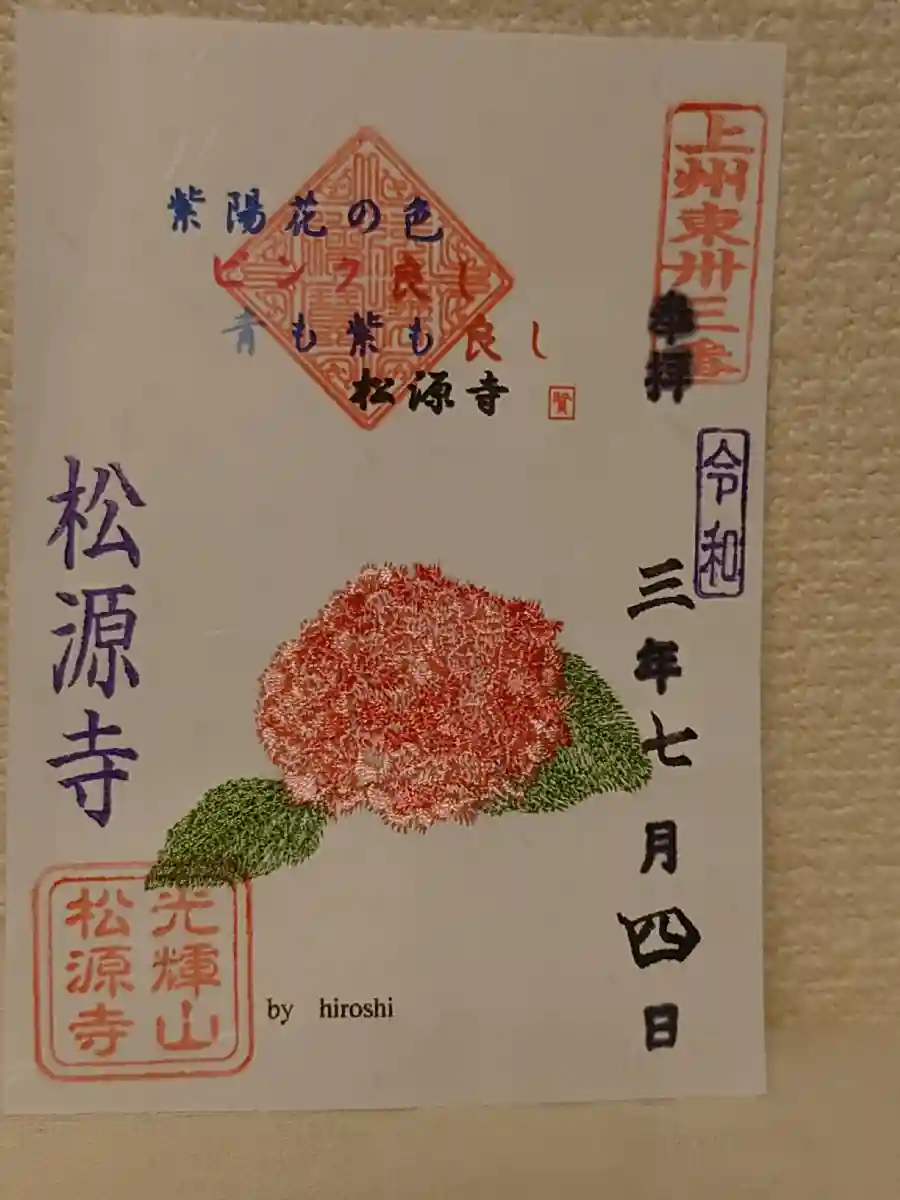 上州東丗三番
奉拝
令和
三年七月四日
紫陽花の色
ピンク良し
青も紫も良し
松源寺
賢
松源寺
光輝山
松源寺
by hiroshi